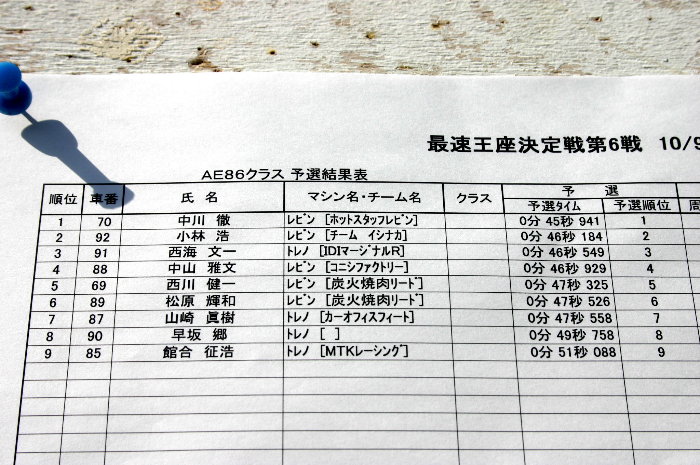 最速王座決定戦第6戦 10/9
AE86クラス 予選結果表
順位 車番 氏 名 マシン名・チーム名 クラス 予 選
予選タイム 予選順位 周
1 70 中川 徹 レビン [ホットスタッフレビン] 0分 45秒 941 1
2 92 小林 浩 レビン [チーム イシナカ] 0分 46秒 184 2
3 91 西海 文一 トレノ [IDIマージナルR] 0分 46秒 549 3
4 88 中山 雅文 レビン [コニシファクトリー] 0分 46秒 929 4
5 69 西川 健一 レビン [炭火焼肉リード] 0分 47秒 325 5
6 89 松原 輝和 レビン [炭火焼肉リード] 0分 47秒 526 6
7 87 山崎 眞樹 トレノ [カーオフィスフィート] 0分 47秒 558 7
8 90 早坂 郷 トレノ [ ] 0分 49秒 758 8
9 85 館合 征浩 トレノ [MTKレーシング] 0分 51秒 088 9